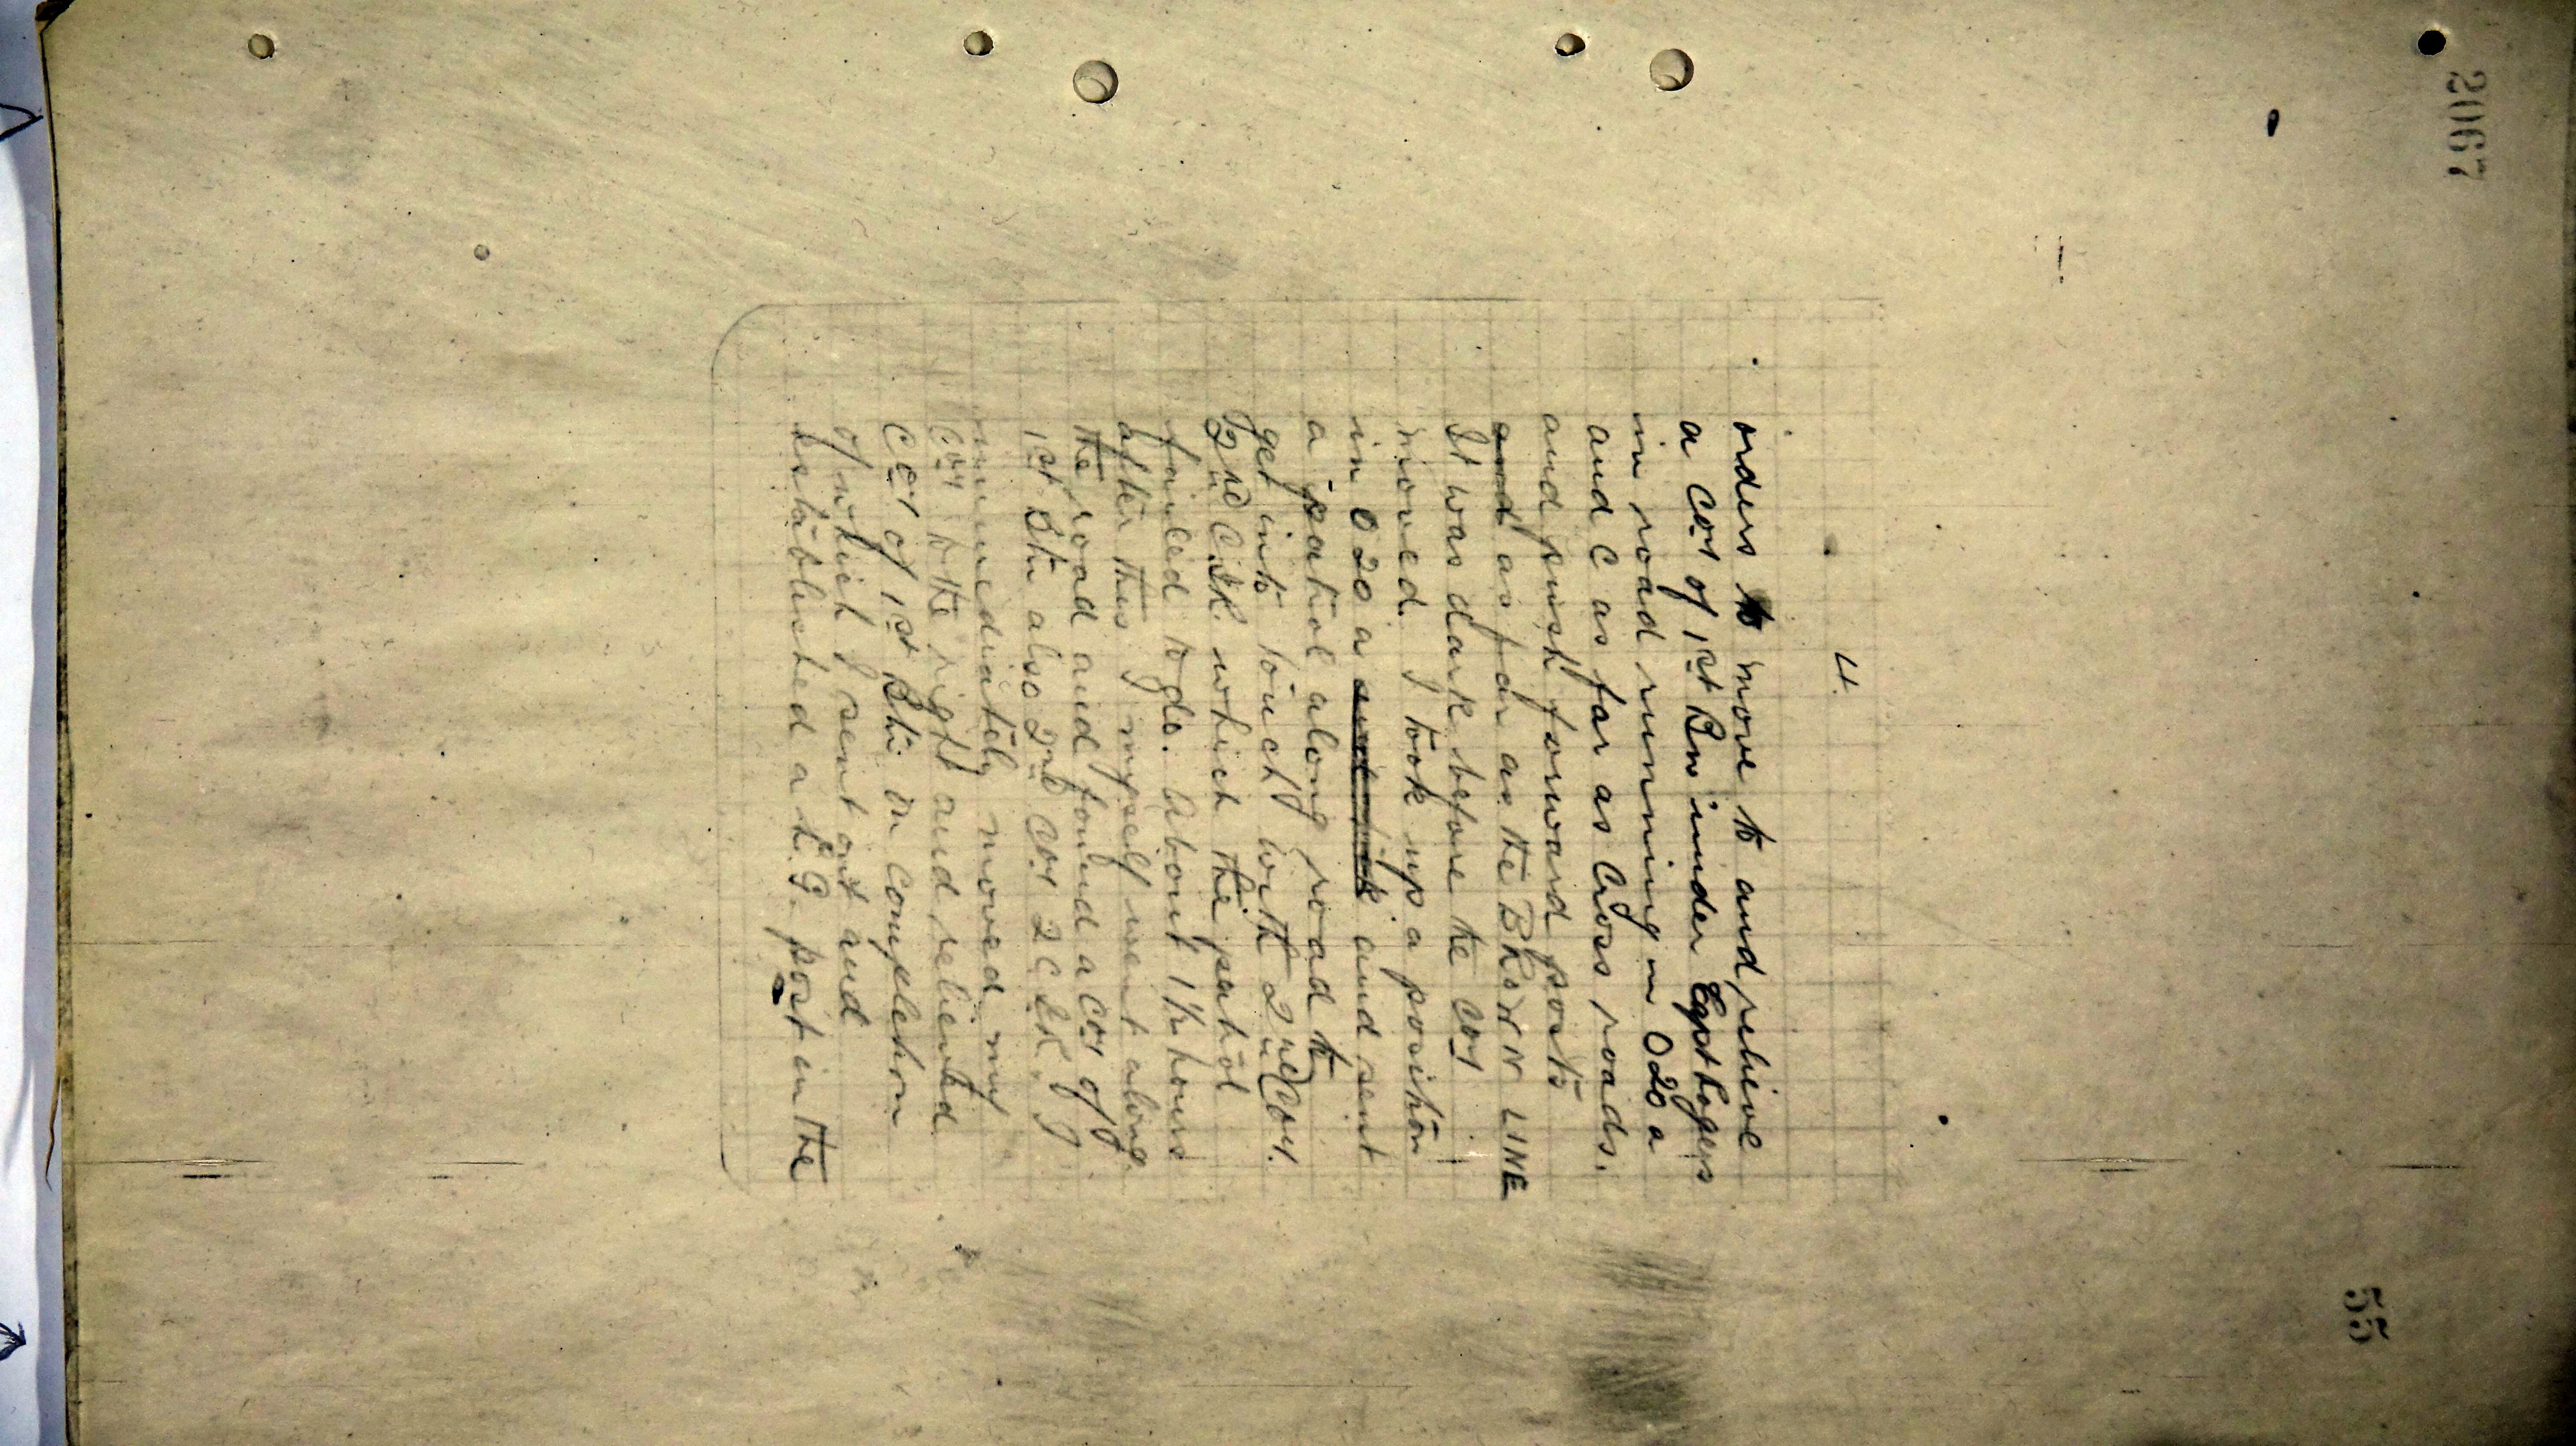 2067
55
4.
orders to move to and relieve
a Coy of 1st Bn under Capt Rogers
in road running in O 20 a
and C as far as Cross roads.
and push forward posts
and as far as the BROWN LINE
It was dark before the Coy
moved. I took up a position
in O 20 a and sent
a patrol along road to
get into touch with 2nd Coy.
2nd C.I.R. which the patrol
failed to do. About 1½ hours
after this I myself went along
the road and found a Coy of
1st Btn also 2nd Coy 2 C I R. I
immediately moved my
Coy to the right and relieved
Coy of 1st Btn on completion
of which I sent out and
established a L.G. post in the